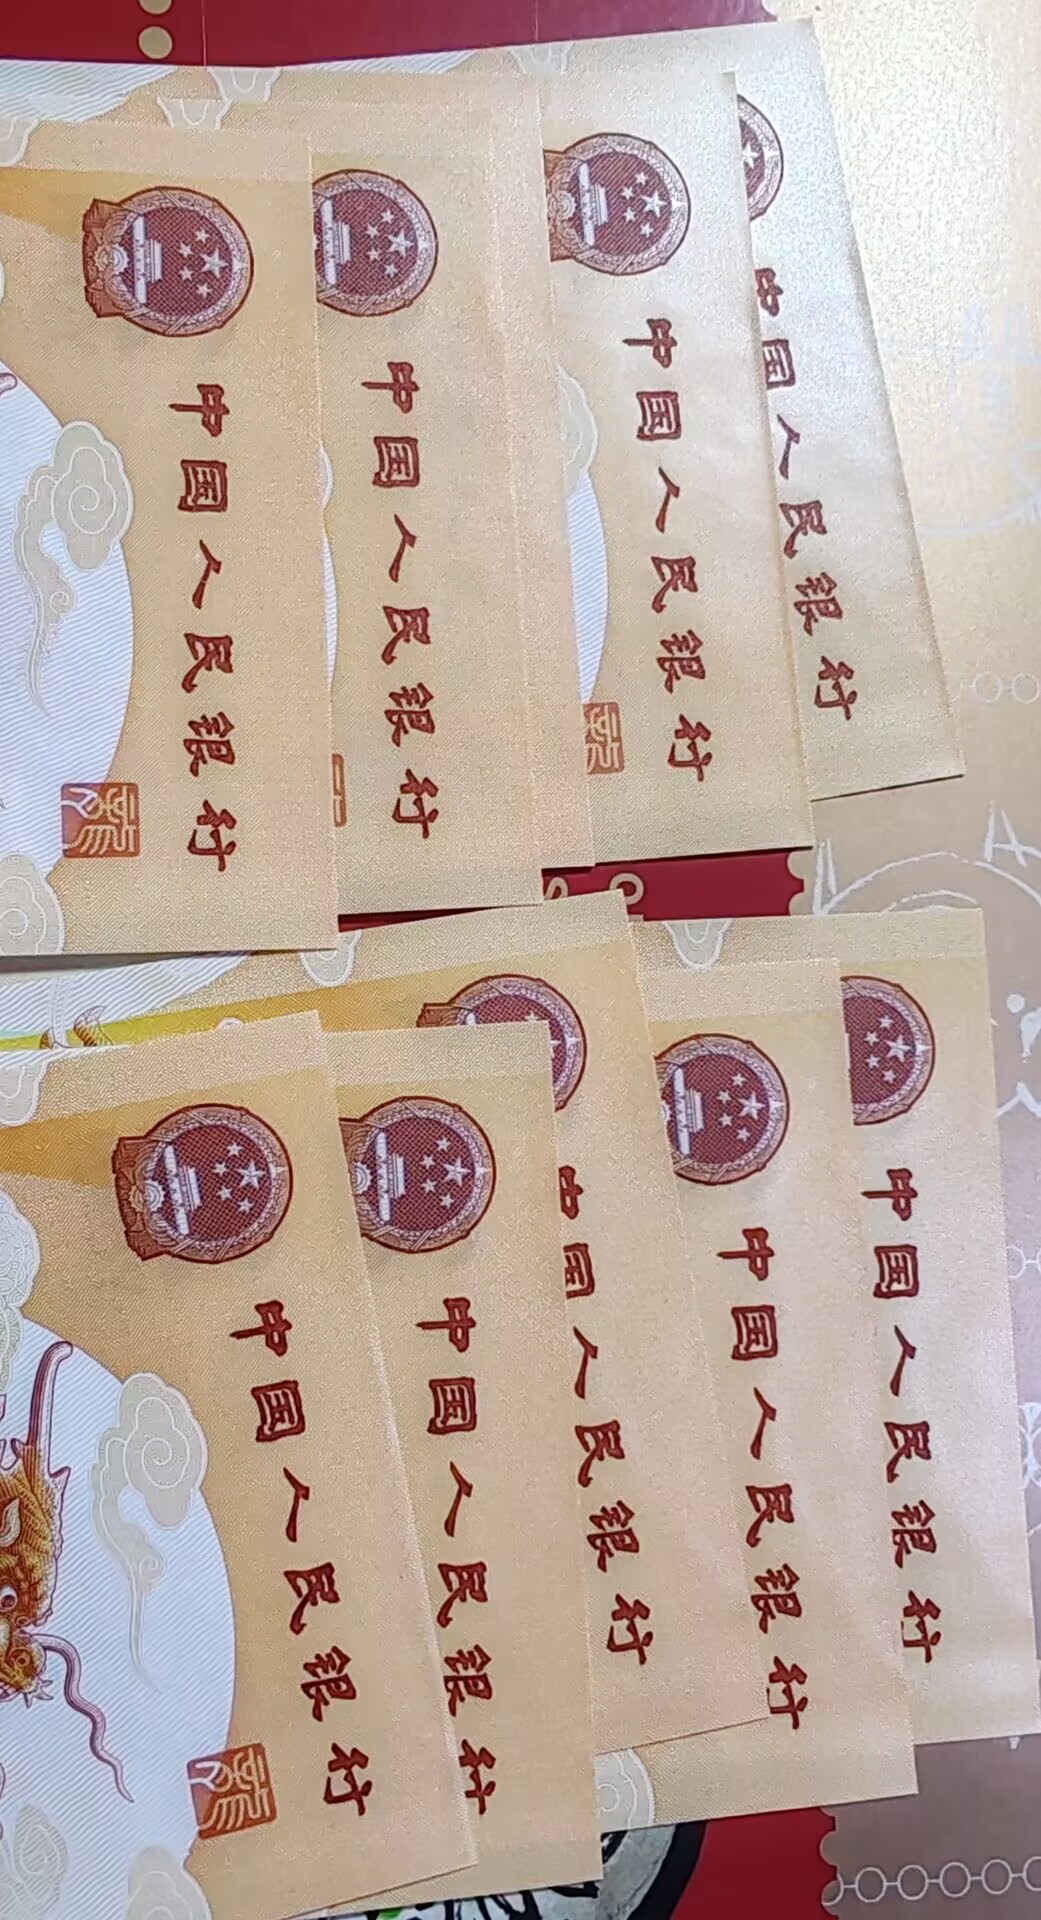 中国人民银行
龍
中国人民银行
中国人民银行
中国人民银行
中国人民银行
龍
中国人民银行
中国人民银行
中国人民银行
中国人民银行